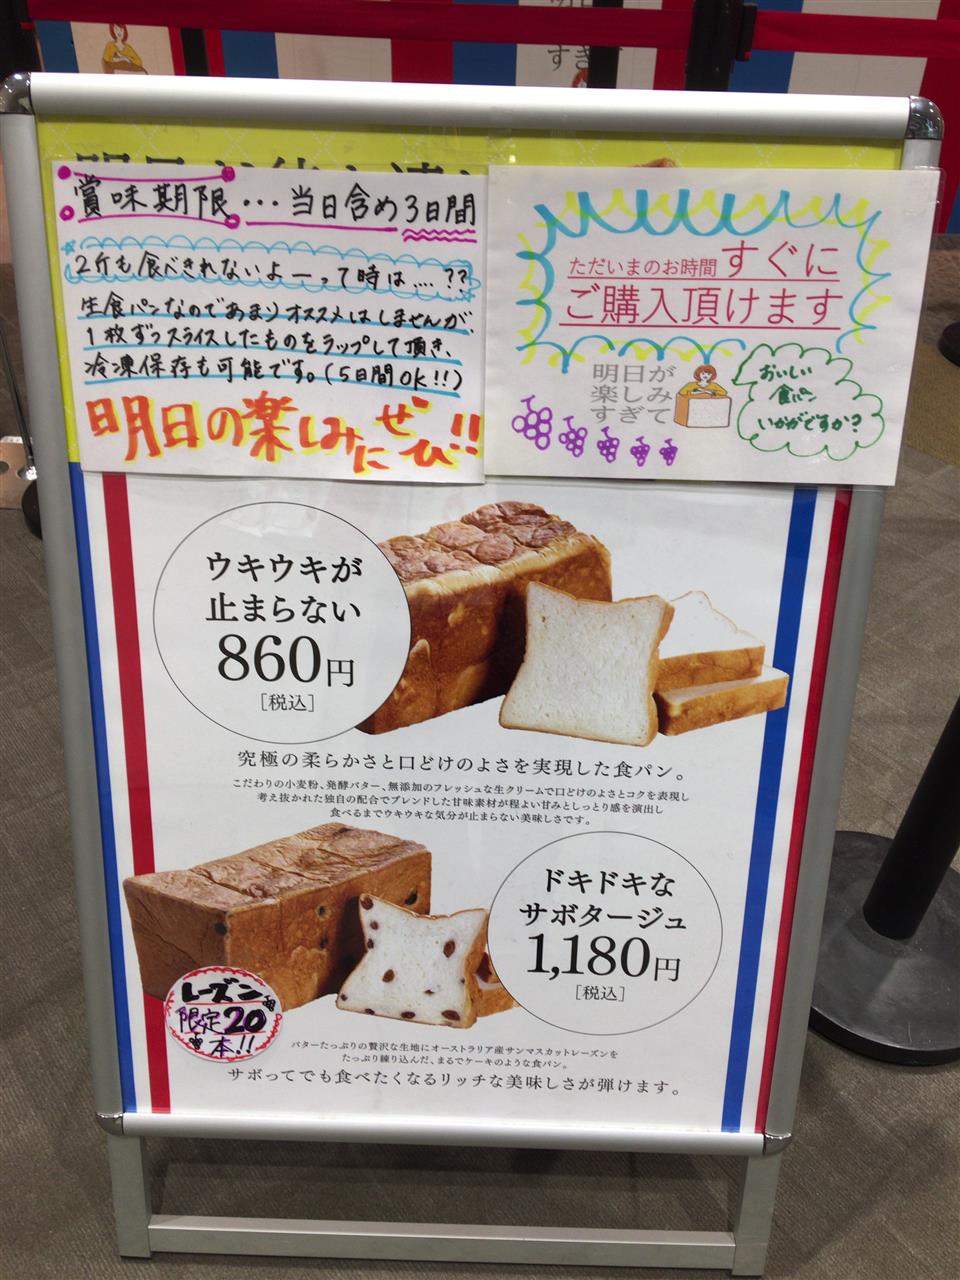 明日が
すぎ
賞味期限…当日含め3日間
2斤も食べきれないよーって時は....??
生食パンなのであまりオススメはしませんが、
1枚ずつスライスしたものをラップして頂き、
冷凍保存も可能です。(5日間OK!!)
明日の楽しみにぜひ!!
ただいまのお時間すぐに
ご購入頂けます
明日が
楽しみ
すぎて
おいしい
食パン
いかがですか?
ウキウキが
止まらない
860円
[税込]
究極の柔らかさと口どけのよさを実現した食パン。
こだわりの小麦粉、発酵バター、無添加のフレッシュな生クリームで口どけのよさとコクを表現し
考え抜かれた独自の配合でブレンドした甘味素材が程よい甘みとしっとり感を演出し
食べるまでウキウキな気分が止まらない美味しさです。
ドキドキな
サボタージュ
1,180円
[税込]
レーズン
限定20
本!!
バターたっぷりの贅沢な生地にオーストラリア産サンマスカットレーズンを
たっぷり練り込んだ、まるでケーキのような食パン。
サボってでも食べたくなるリッチな美味しさが弾けます。